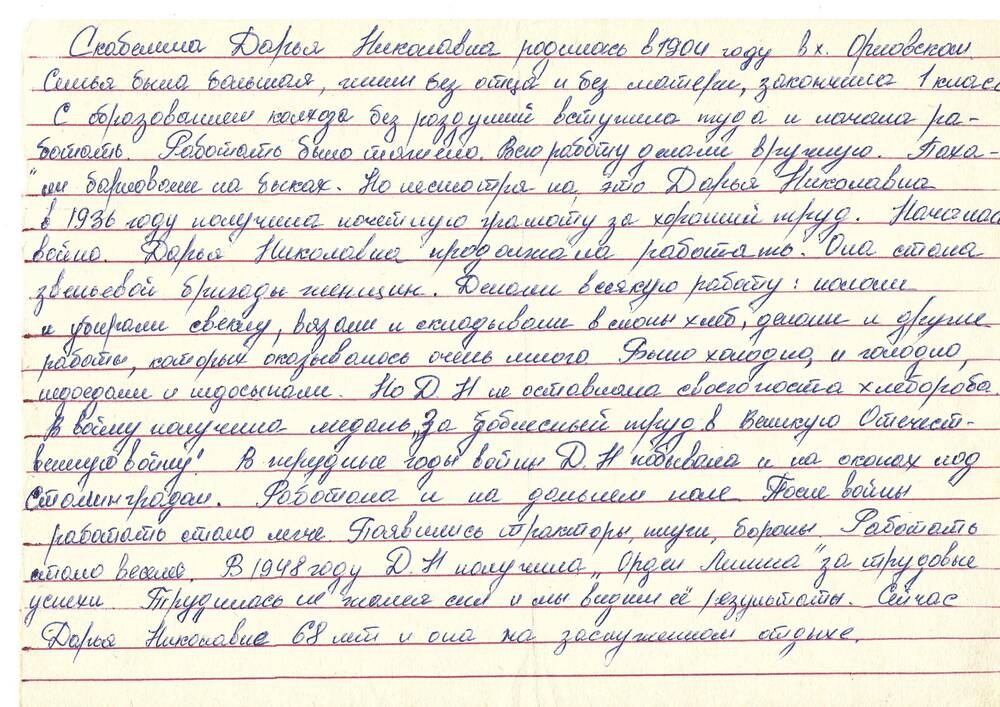 Скабелина Дарья Николавна родилась в 1904 году в х. Орловском.
Семья была большая, жили без отца и без матери, закончила 1 класс
С образованием колхоза без раздумий вступила туда и начала ра-
ботать. Работать было тяжело. Всю работу делали вручную. Паха-
ли бароновали на быках. Но несмотря на, это Дарья Николавна
в 1936 году получила почетную грамоту за хороший труд. Началась
война. Дарья Николавна продолжала работать. Она стала
звеньевой бригады женщин. Делали всякую работу: пололи
и убирали свеклу, вязали и складывали в снопы хлеб, делали и другие
работы, которых оказывалось очень много Было холодно, и голодно,
недоедали и недосыпали. Но Д. Н не оставляла своего поста хлебороба.
В войну получила медаль „За доблесный труд в Великую Отечест-
венную войну". В трудные годы войны Д. Н побывала и на окопах под
Сталинградом. Работала и на дальнем поле После войны
работать стало легче Появились тракторы, плуги, бороны. Работать
стало веселе. В 1948 году Д. Н получила „Орден Ленина" за трудовые
успехи Трудилась не жалея сил и мы видим её результаты. Сейчас
Дарье Николавне 68 лет и она на заслуженном отдыхе.